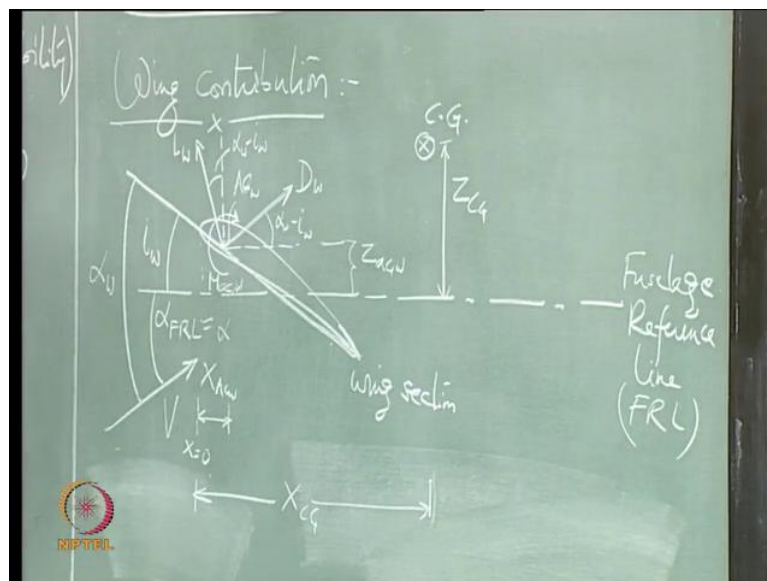 ility)
Wing Contribution :-
C.G.
L_W
α_W - i_W
AC_W
D_W
α_W - i_W
Z_CG
Z_ACW
α_W
i_W
M_ACW
α_FRL = α
Fuselage
Reference
Line
(FRL)
X_ACW
V
X=0
wing section
X_CG
NPTEL